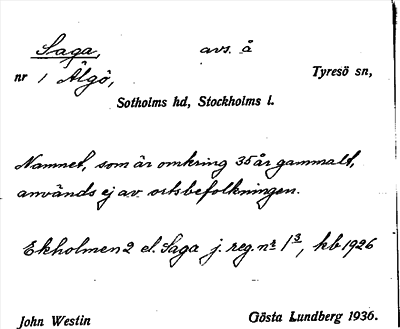 Saga, avs. å
nr 1 Älgö, Tyresö sn,
Sotholms hd, Stockholms l.
Namnet, som är omkring 35 år gammalt,
används ej av ortsbefolkningen.
Ekholmen 2 el. Saga j. reg. nr 1³, kb 1926
John Westin Gösta Lundberg 1936.